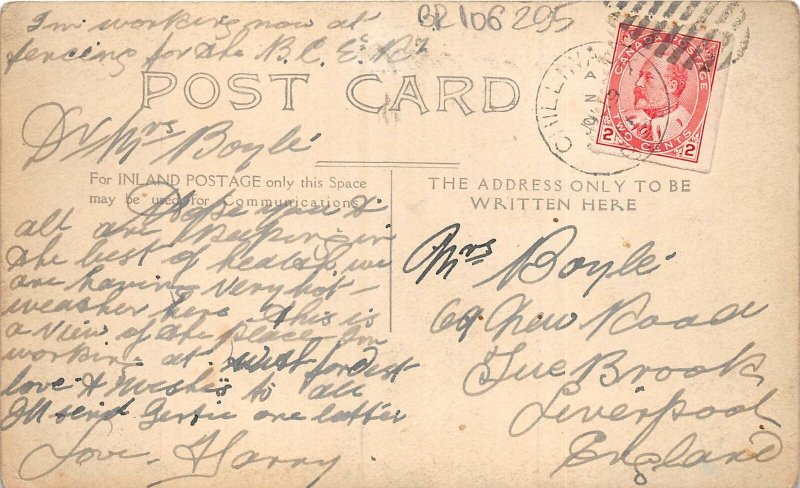 I'm working now at
fencing for the B.C. Es Ry
BR106295
POST CARD
CANADA POSTAGE
2 TWO CENTS 2
CHILLIWACK
Dr Mrs Boyle
For INLAND POSTAGE only this Space
may be used for Communications.
Hope you &
all are keeping in
the best of health, we
are having very hot
weather here This is
a view of the place Im
working at with fondest
love & wishes to all
Ill send Gertie one latter
Love, Harry.
THE ADDRESS ONLY TO BE
WRITTEN HERE
Mrs Boyle
69 New Road
Tue Brook
Liverpool
England